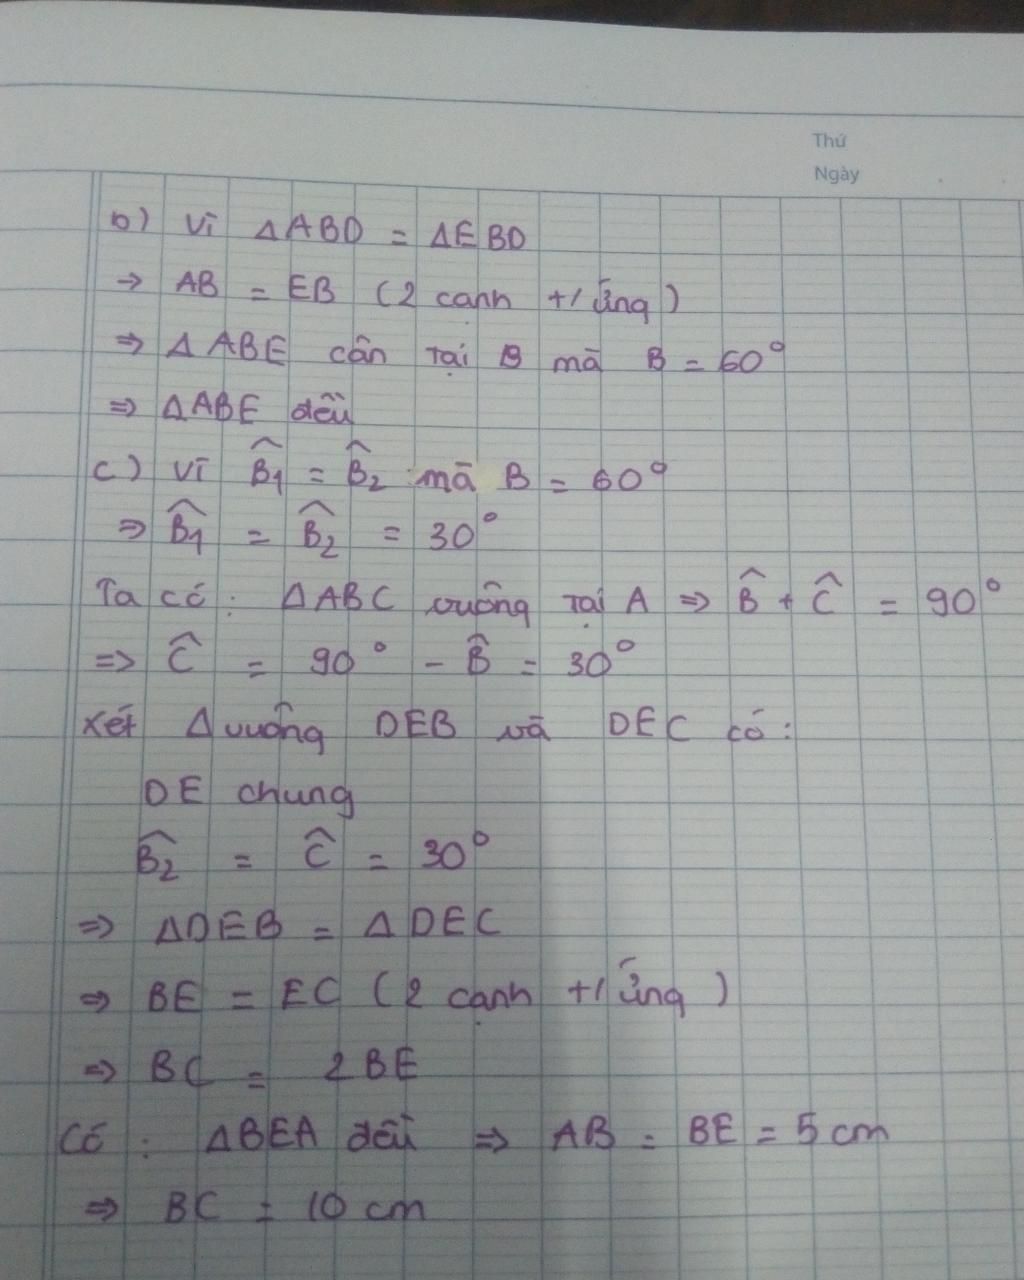 Thứ
Ngày
b) Vì ΔABD = ΔEBD
→ AB = EB (2 cạnh t/ứng)
⇒ ΔABE cân tại B mà B = 60°
⇒ ΔABE đều
c) Vì B̂1 = B̂2 mà B = 60°
⇒ B̂1 = B̂2 = 30°
Ta có: ΔABC vuông tại A ⇒ B̂ + Ĉ = 90°
⇒ Ĉ = 90° - B̂ = 30°
Xét Δ vuông DEB và DEC có:
DE chung
B̂2 = Ĉ = 30°
⇒ ΔDEB = ΔDEC
⇒ BE = EC (2 cạnh t/ứng)
⇒ BC = 2BE
Có: ΔBEA đều ⇒ AB = BE = 5 cm
⇒ BC = 10 cm